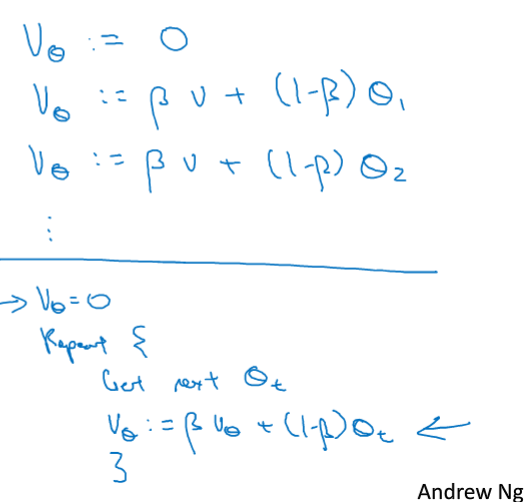 V_θ := 0
V_θ := β v + (1-β) θ_1
V_θ := β v + (1-β) θ_2
⋮
→ V_θ = 0
Repeat {
Get next θ_t
V_θ := β V_θ + (1-β) θ_t ←
}
Andrew Ng